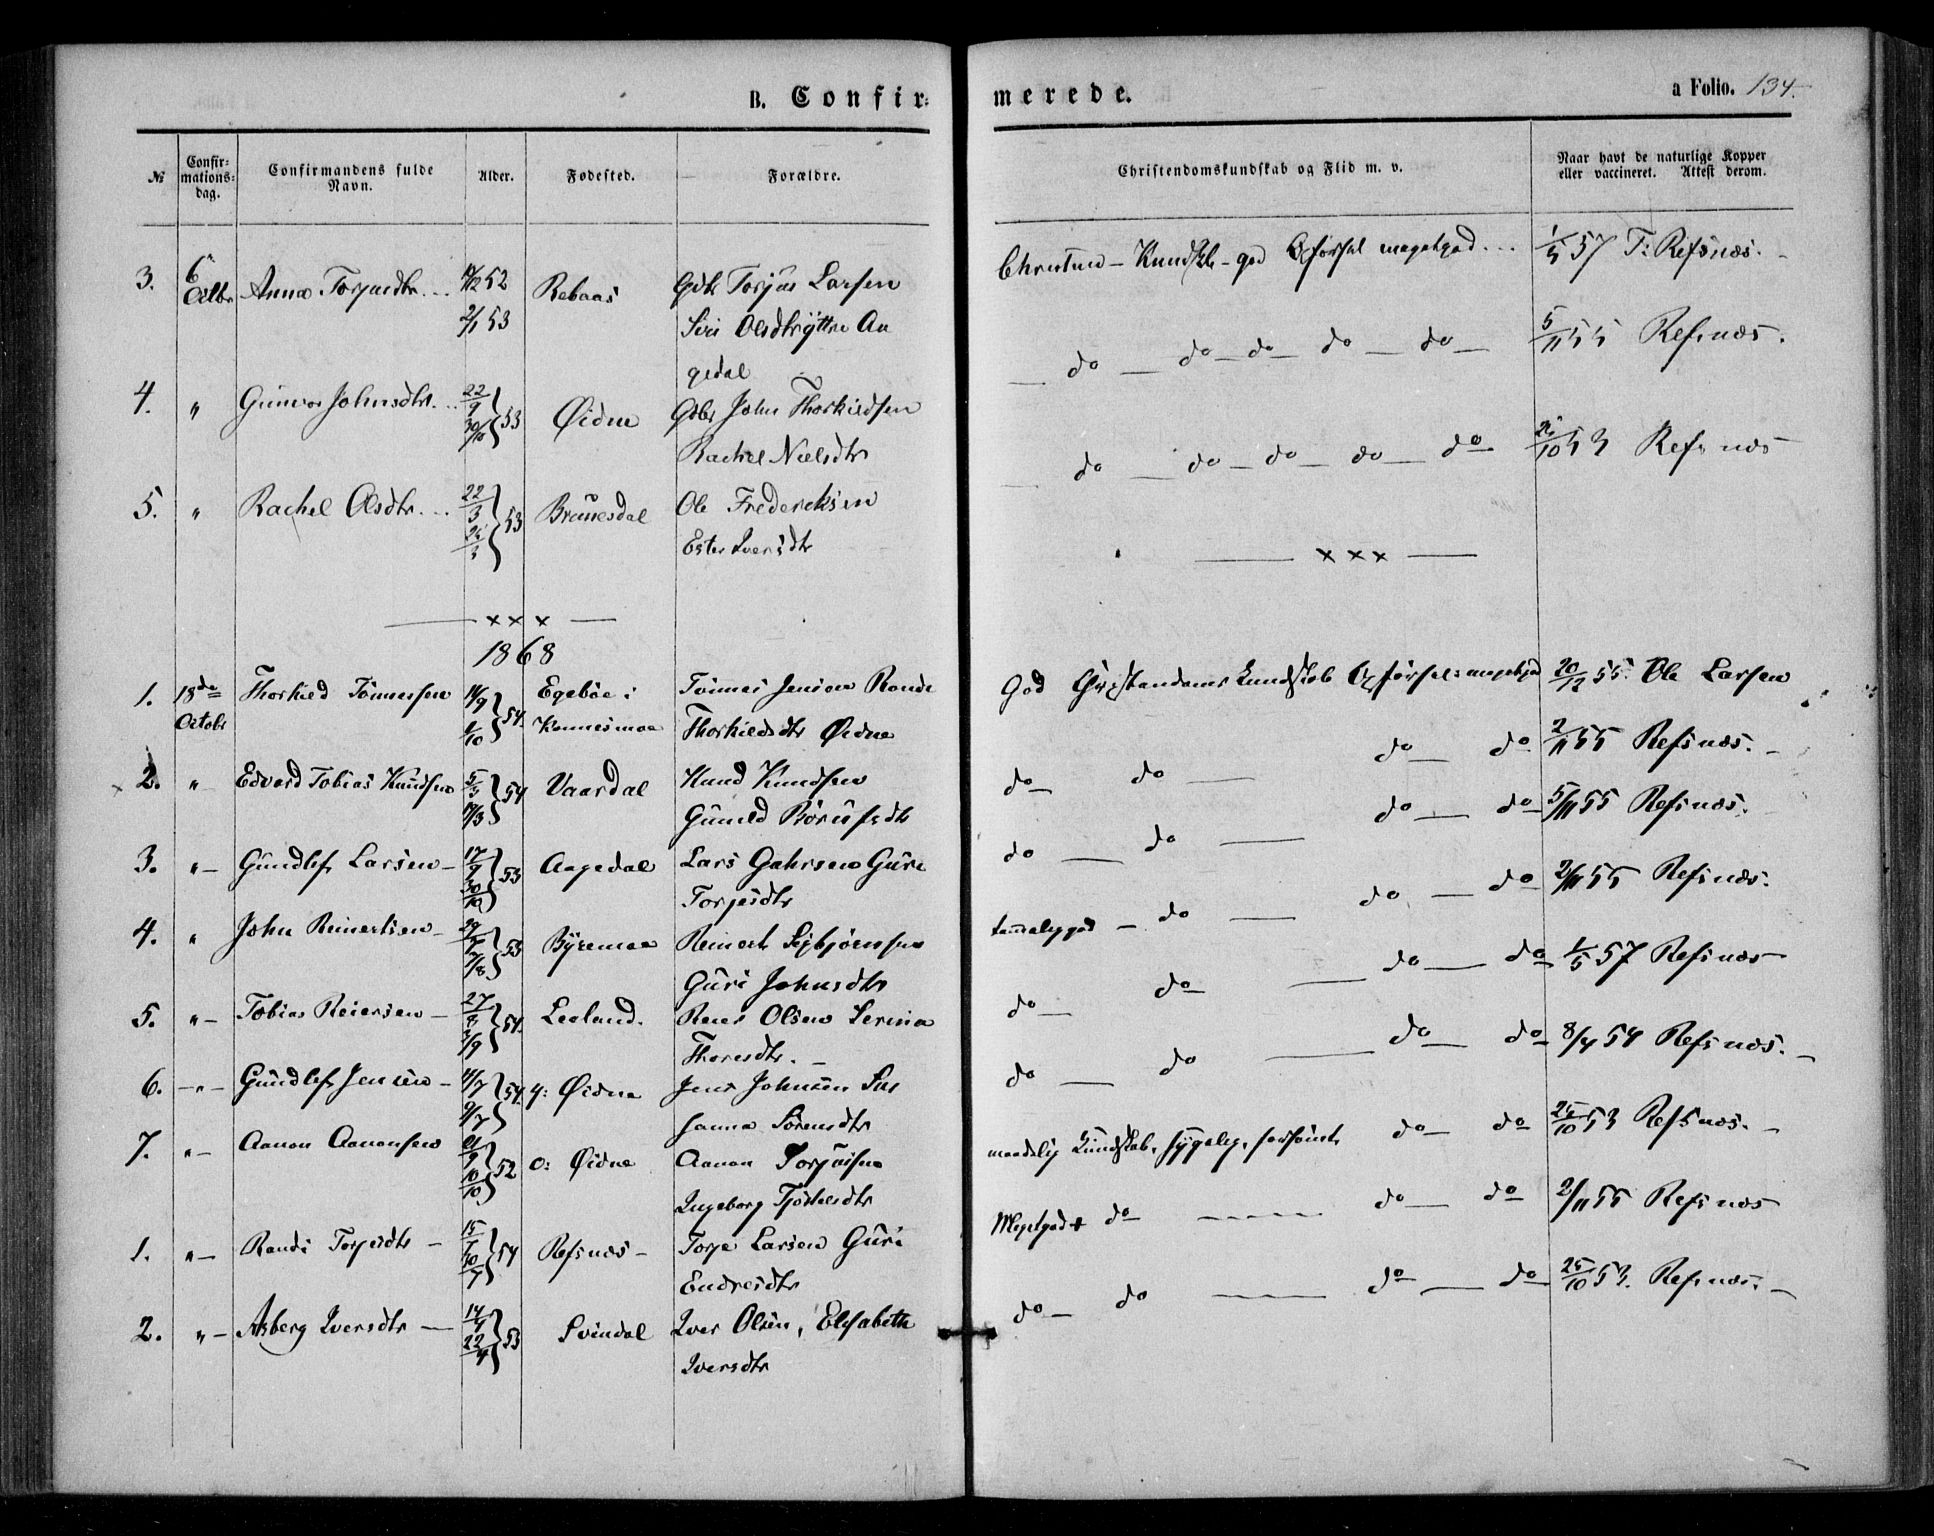 B. Confir-
merede.
a Folio. 134.
№
Confir-
mations-
dag.
Confirmandens fulde
Navn.
Alder.
Fødested.
Forældre.
Christendomskundskab og Flid m. v.
Naar havt de naturlige Kopper
eller vaccineret. Attest derom.
3. 6 Octbr Anna Torjusdtr. 52 Rebaas Gdbr Torjus Larsen
2/1 53 Siri Olsdtr Yttre Aa
gedal
1/5 57 T: Refsnæs.
4. " Gunvor Johnsdtr. 22/9 30/10 53 Øidne Gdbr John Thorkildsen
Rachel Nielsdtr
do do do do do 5/11 55 Refsnæs.
5. " Rachel Olsdtr. 22/3 53 Brunesdal Ole Fredericksen
Ester Iversdtr
do do do do do 10 53 Refsnæs
x x x
x x x
1868
1. 18de Octobr Thorkild Tönnessen 10 54. Egeböe i Tönnes Jensen Rande
Konnesmoe Thorkildsdtr Øidne
God Christendoms Kundskab Opførsel: megetgod 20/12 55. Ole Larsen
2. " Edvard Tobias Knudsen 5/3 54 Vaardal Knud Knudsen
Gunild Börufsdtr
do do do do 2/11 55 Refsnæs.
3. " Gundlef Larsen 17/9 30/10 53 Aagedal Lars Gahrsen Guri
Torjesdtr
do do do do 5/11 55 Refsnæs.
4. " John Reinertsen 7/8 53 Byremoe Reinert Sigbjörnsen
Guri Johnsdtr
temmeliggod do do do 2/11 55 Refsnæs.
5. " Tobias Reiersen 27/8 54. Leeland. Reier Olsen Serina
Thoresdtr.
do do do do 1/5 57 Refsnæs
6. " Gundlef Jensen 9/7 54. y: Øidne Jens Johnsen Su
sanna Sörensdtr
do do do do 8/4 54 Refsnæs.
7. " Aanon Aanonsen 10/10 52 o: Øidne Aanon Torjusen
Ingeborg Tjöstelsdtr
maadelig Kundskab, do do 25/10 53 Refsnæs.
1. " Randi Torjesdtr 54 Refsnæs Torje Larsen Guri
Endresdtr
Megetgod do do do 2/11 55 Refsnæs
2. " Asberg Iversdtr 14/4 22/4 53 Svindal Iver Olsen, Elisabeth
Iversdtr
do do do do 25/10 53. Refsnæs.